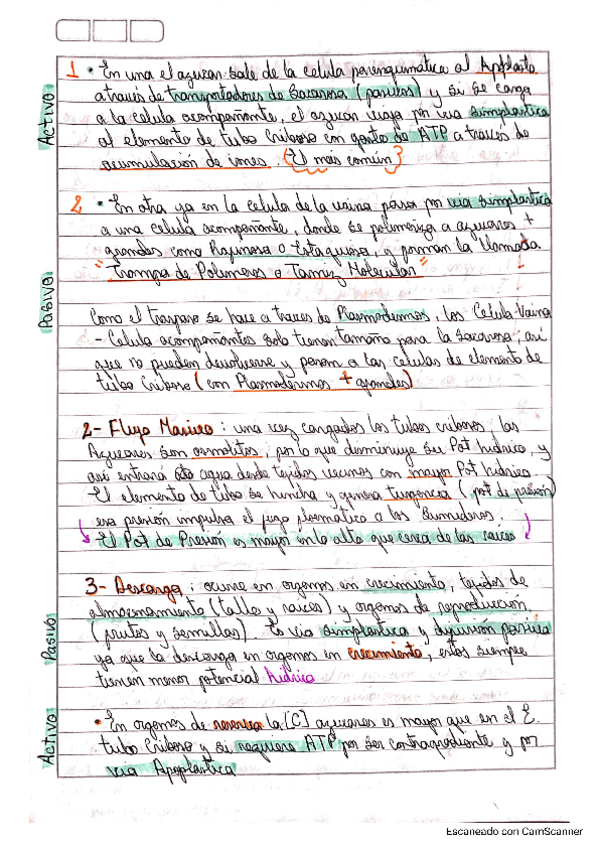 Activo
1 • En una el azucar sale de la celula parenquimatica al Apoplasto
a través de transportadores de Sacarosa (pasivos) y si se carga
a la celula acompañante, el azucar viaja por via simplastica
al elemento de tubo Criboso con gasto de ATP a través de
acumulación de iones. {El más común}
Pasivo
2 • En otra ya en la celula de la vaina pasa por via simplastica
a una celula acompañante, donde se polimeriza a azucares +
grandes como Rafinosa o Estaquiosa, y forman la llamada
"Trampa de Polimeros o Tamiz Molecular"
Como el traspaso se hace a traves de Plasmodermos, los Celula Vaina
- Celula acompañantes solo tienen tamaño para la sacarosa, así
que no pueden devolverse y pasan a las celulas de elemento de
tubo Criboso (con Plasmodermos + grandes)
2- Flujo Masivo : una vez cargados los tubos cribosos, las
Azucares son osmolitos, por lo que disminuye su Pot hidrico, y
así entrará agua desde tejidos vecinos con mayor Pot hidrico.
El elemento de tubo se hincha y genera turgencia (pot de presión)
esa presión impulsa el jugo plasmatico a los Sumideros.
El Pot de Presión es mayor en lo alto que cerca de las raices
3- Descarga : ocurre en organos en crecimiento, tejidos de
almacenamiento (tallo y raices) y organos de reproducción
Pasivo
(frutos y semillas). Es via simplastica y difusión pasiva
ya que la descarga en organos en crecimiento, estos siempre
tienen menor potencial hidrico
Activo
• En organos de reserva la [C] azucares es mayor que en el E.
tubo Criboso y si requiere ATP por ser contragradiente y por
via Apoplastica
Escaneado con CamScanner